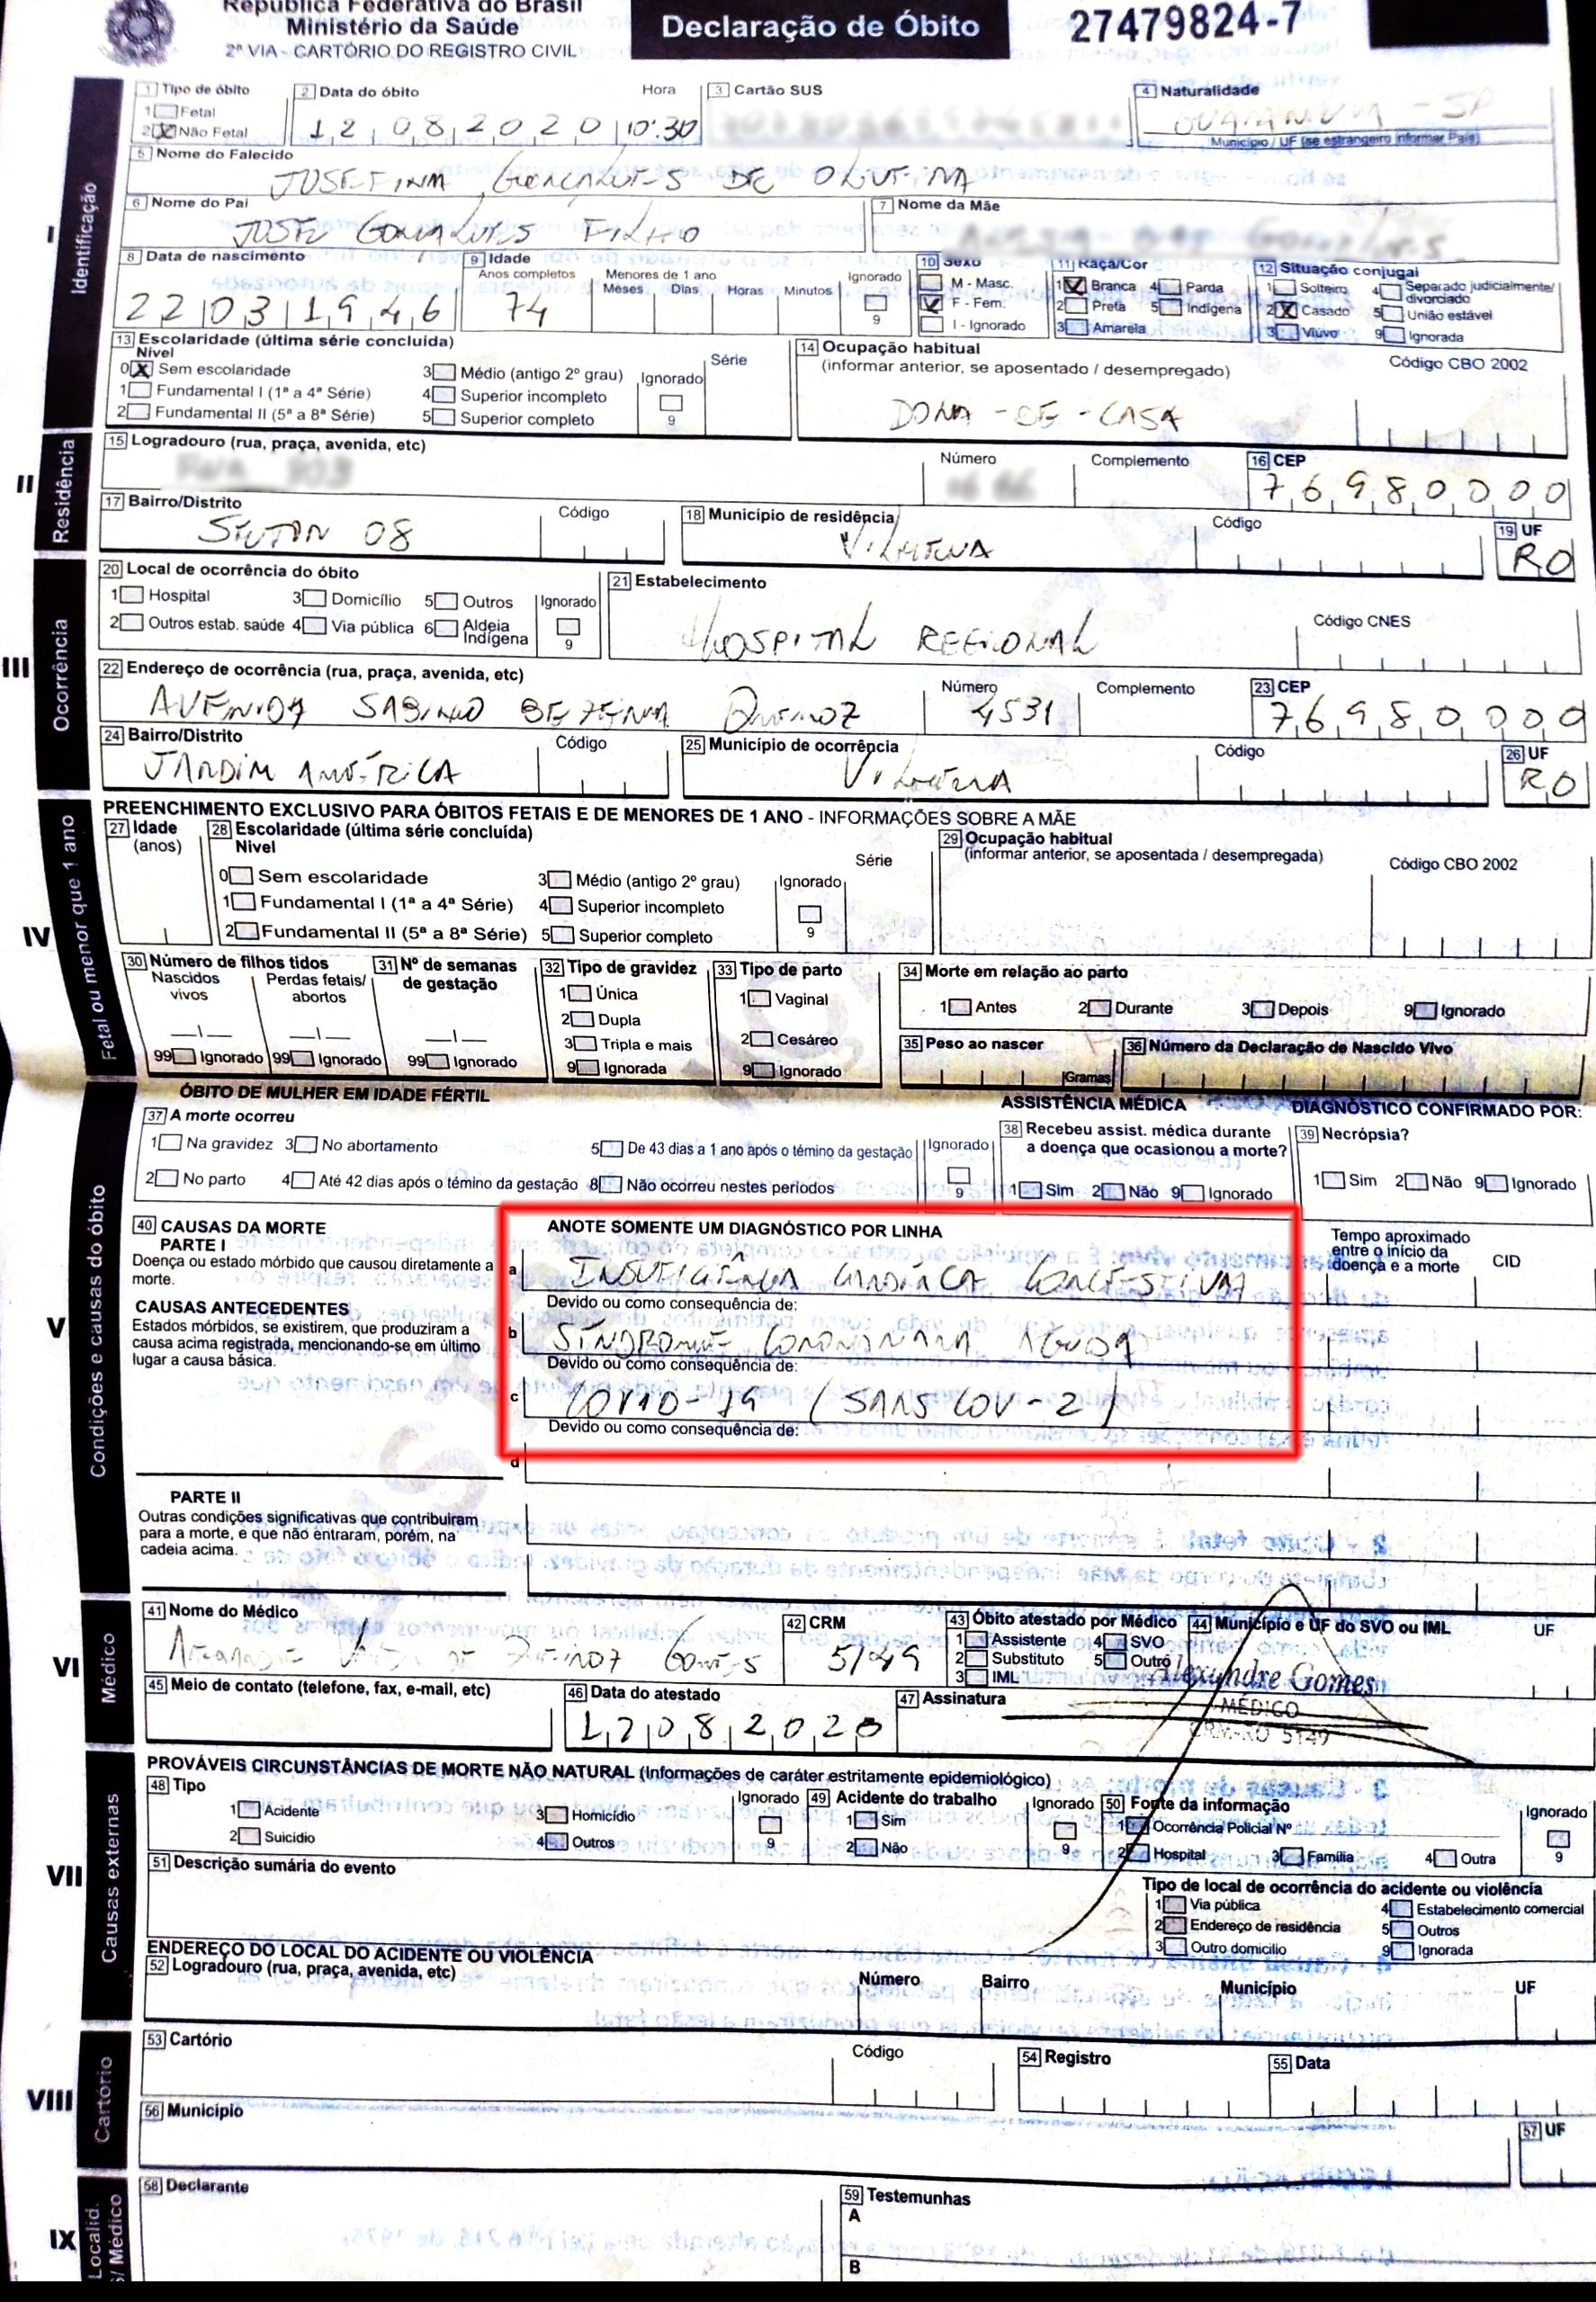 República Federativa do Brasil
Ministério da Saúde
2ª VIA - CARTÓRIO DO REGISTRO CIVIL
Declaração de Óbito
27479824-7
I Identificação
1 Tipo de óbito
1 Fetal
2 X Não Fetal
2 Data do óbito Hora
12 08 2020 10:30
3 Cartão SUS
4 Naturalidade
SP
Município / UF (se estrangeiro informar País)
5 Nome do Falecido
JOSEFINA GONÇALVES DE OLIVEIRA
6 Nome do Pai
JOSE GONÇALVES FILHO
7 Nome da Mãe
8 Data de nascimento
22 03 1946
9 Idade
Anos completos Menores de 1 ano Ignorado
Meses Dias Horas Minutos
74 9
10 Sexo
M - Masc.
X F - Fem.
I - Ignorado
11 Raça/Cor
1 X Branca 4 Parda
2 Preta 5 Indígena
3 Amarela
12 Situação conjugal
1 Solteiro 4 Separado judicialmente/ divorciado
2 X Casado 5 União estável
3 Viúvo 9 Ignorada
13 Escolaridade (última série concluída)
Nível Série
0 X Sem escolaridade 3 Médio (antigo 2º grau) Ignorado
1 Fundamental I (1ª a 4ª Série) 4 Superior incompleto
2 Fundamental II (5ª a 8ª Série) 5 Superior completo 9
14 Ocupação habitual
(informar anterior, se aposentado / desempregado) Código CBO 2002
DONA-DE-CASA
II Residência
15 Logradouro (rua, praça, avenida, etc) Número Complemento 16 CEP
76980000
17 Bairro/Distrito Código 18 Município de residência Código 19 UF
SETOR 08 VILHENA RO
III Ocorrência
20 Local de ocorrência do óbito
1 Hospital 3 Domicílio 5 Outros Ignorado
2 Outros estab. saúde 4 Via pública 6 Aldeia Indígena 9
21 Estabelecimento Código CNES
HOSPITAL REGIONAL
22 Endereço de ocorrência (rua, praça, avenida, etc) Número Complemento 23 CEP
AVENIDA SABINO BEZERRA QUEIROZ 4531 76980000
24 Bairro/Distrito Código 25 Município de ocorrência Código 26 UF
JARDIM AMÉRICA VILHENA RO
IV Fetal ou menor que 1 ano
PREENCHIMENTO EXCLUSIVO PARA ÓBITOS FETAIS E DE MENORES DE 1 ANO - INFORMAÇÕES SOBRE A MÃE
27 Idade (anos)
28 Escolaridade (última série concluída)
Nível Série
0 Sem escolaridade 3 Médio (antigo 2º grau) Ignorado
1 Fundamental I (1ª a 4ª Série) 4 Superior incompleto
2 Fundamental II (5ª a 8ª Série) 5 Superior completo 9
29 Ocupação habitual
(informar anterior, se aposentada / desempregada) Código CBO 2002
30 Número de filhos tidos
Nascidos vivos Perdas fetais/ abortos
99 Ignorado 99 Ignorado
31 Nº de semanas de gestação
99 Ignorado
32 Tipo de gravidez
1 Única
2 Dupla
3 Tripla e mais
9 Ignorada
33 Tipo de parto
1 Vaginal
2 Cesáreo
9 Ignorado
34 Morte em relação ao parto
1 Antes 2 Durante 3 Depois 9 Ignorado
35 Peso ao nascer
Gramas
36 Número da Declaração de Nascido Vivo
V Condições e causas do óbito
ÓBITO DE MULHER EM IDADE FÉRTIL
37 A morte ocorreu
1 Na gravidez 3 No abortamento 5 De 43 dias a 1 ano após o témino da gestação Ignorado
2 No parto 4 Até 42 dias após o témino da gestação 8 Não ocorreu nestes períodos 9
ASSISTÊNCIA MÉDICA
38 Recebeu assist. médica durante a doença que ocasionou a morte?
1 Sim 2 Não 9 Ignorado
DIAGNÓSTICO CONFIRMADO POR:
39 Necrópsia?
1 Sim 2 Não 9 Ignorado
40 CAUSAS DA MORTE
PARTE I
Doença ou estado mórbido que causou diretamente a morte.
CAUSAS ANTECEDENTES
Estados mórbidos, se existirem, que produziram a causa acima registrada, mencionando-se em último lugar a causa básica.
ANOTE SOMENTE UM DIAGNÓSTICO POR LINHA
Tempo aproximado entre o início da doença e a morte CID
a INSUFICIÊNCIA CARDÍACA CONGESTIVA
Devido ou como consequência de:
b SÍNDROME CORONARIANA AGUDA
Devido ou como consequência de:
c COVID-19 (SARS COV-2)
Devido ou como consequência de:
d
PARTE II
Outras condições significativas que contribuiram para a morte, e que não entraram, porém, na cadeia acima.
VI Médico
41 Nome do Médico 42 CRM
DE QUEIROZ GOMES 5149
43 Óbito atestado por Médico
1 Assistente 4 SVO
2 Substituto 5 Outro
3 IML
44 Município e UF do SVO ou IML UF
Alexandre Gomes
MÉDICO
CRM-RO 5149
45 Meio de contato (telefone, fax, e-mail, etc)
46 Data do atestado
12 08 2020
47 Assinatura
VII Causas externas
PROVÁVEIS CIRCUNSTÂNCIAS DE MORTE NÃO NATURAL (Informações de caráter estritamente epidemiológico)
48 Tipo Ignorado
1 Acidente 3 Homicídio
2 Suicídio 4 Outros 9
49 Acidente do trabalho Ignorado
1 Sim
2 Não 9
50 Fonte da informação Ignorado
1 Ocorrência Policial Nº
2 Hospital 3 Família 4 Outra 9
51 Descrição sumária do evento
Tipo de local de ocorrência do acidente ou violência
1 Via pública 4 Estabelecimento comercial
2 Endereço de residência 5 Outros
3 Outro domicílio 9 Ignorada
ENDEREÇO DO LOCAL DO ACIDENTE OU VIOLÊNCIA
52 Logradouro (rua, praça, avenida, etc) Número Bairro Município UF
VIII Cartório
53 Cartório Código 54 Registro 55 Data
56 Município 57 UF
IX Localid. S/ Médico
58 Declarante 59 Testemunhas
A
B